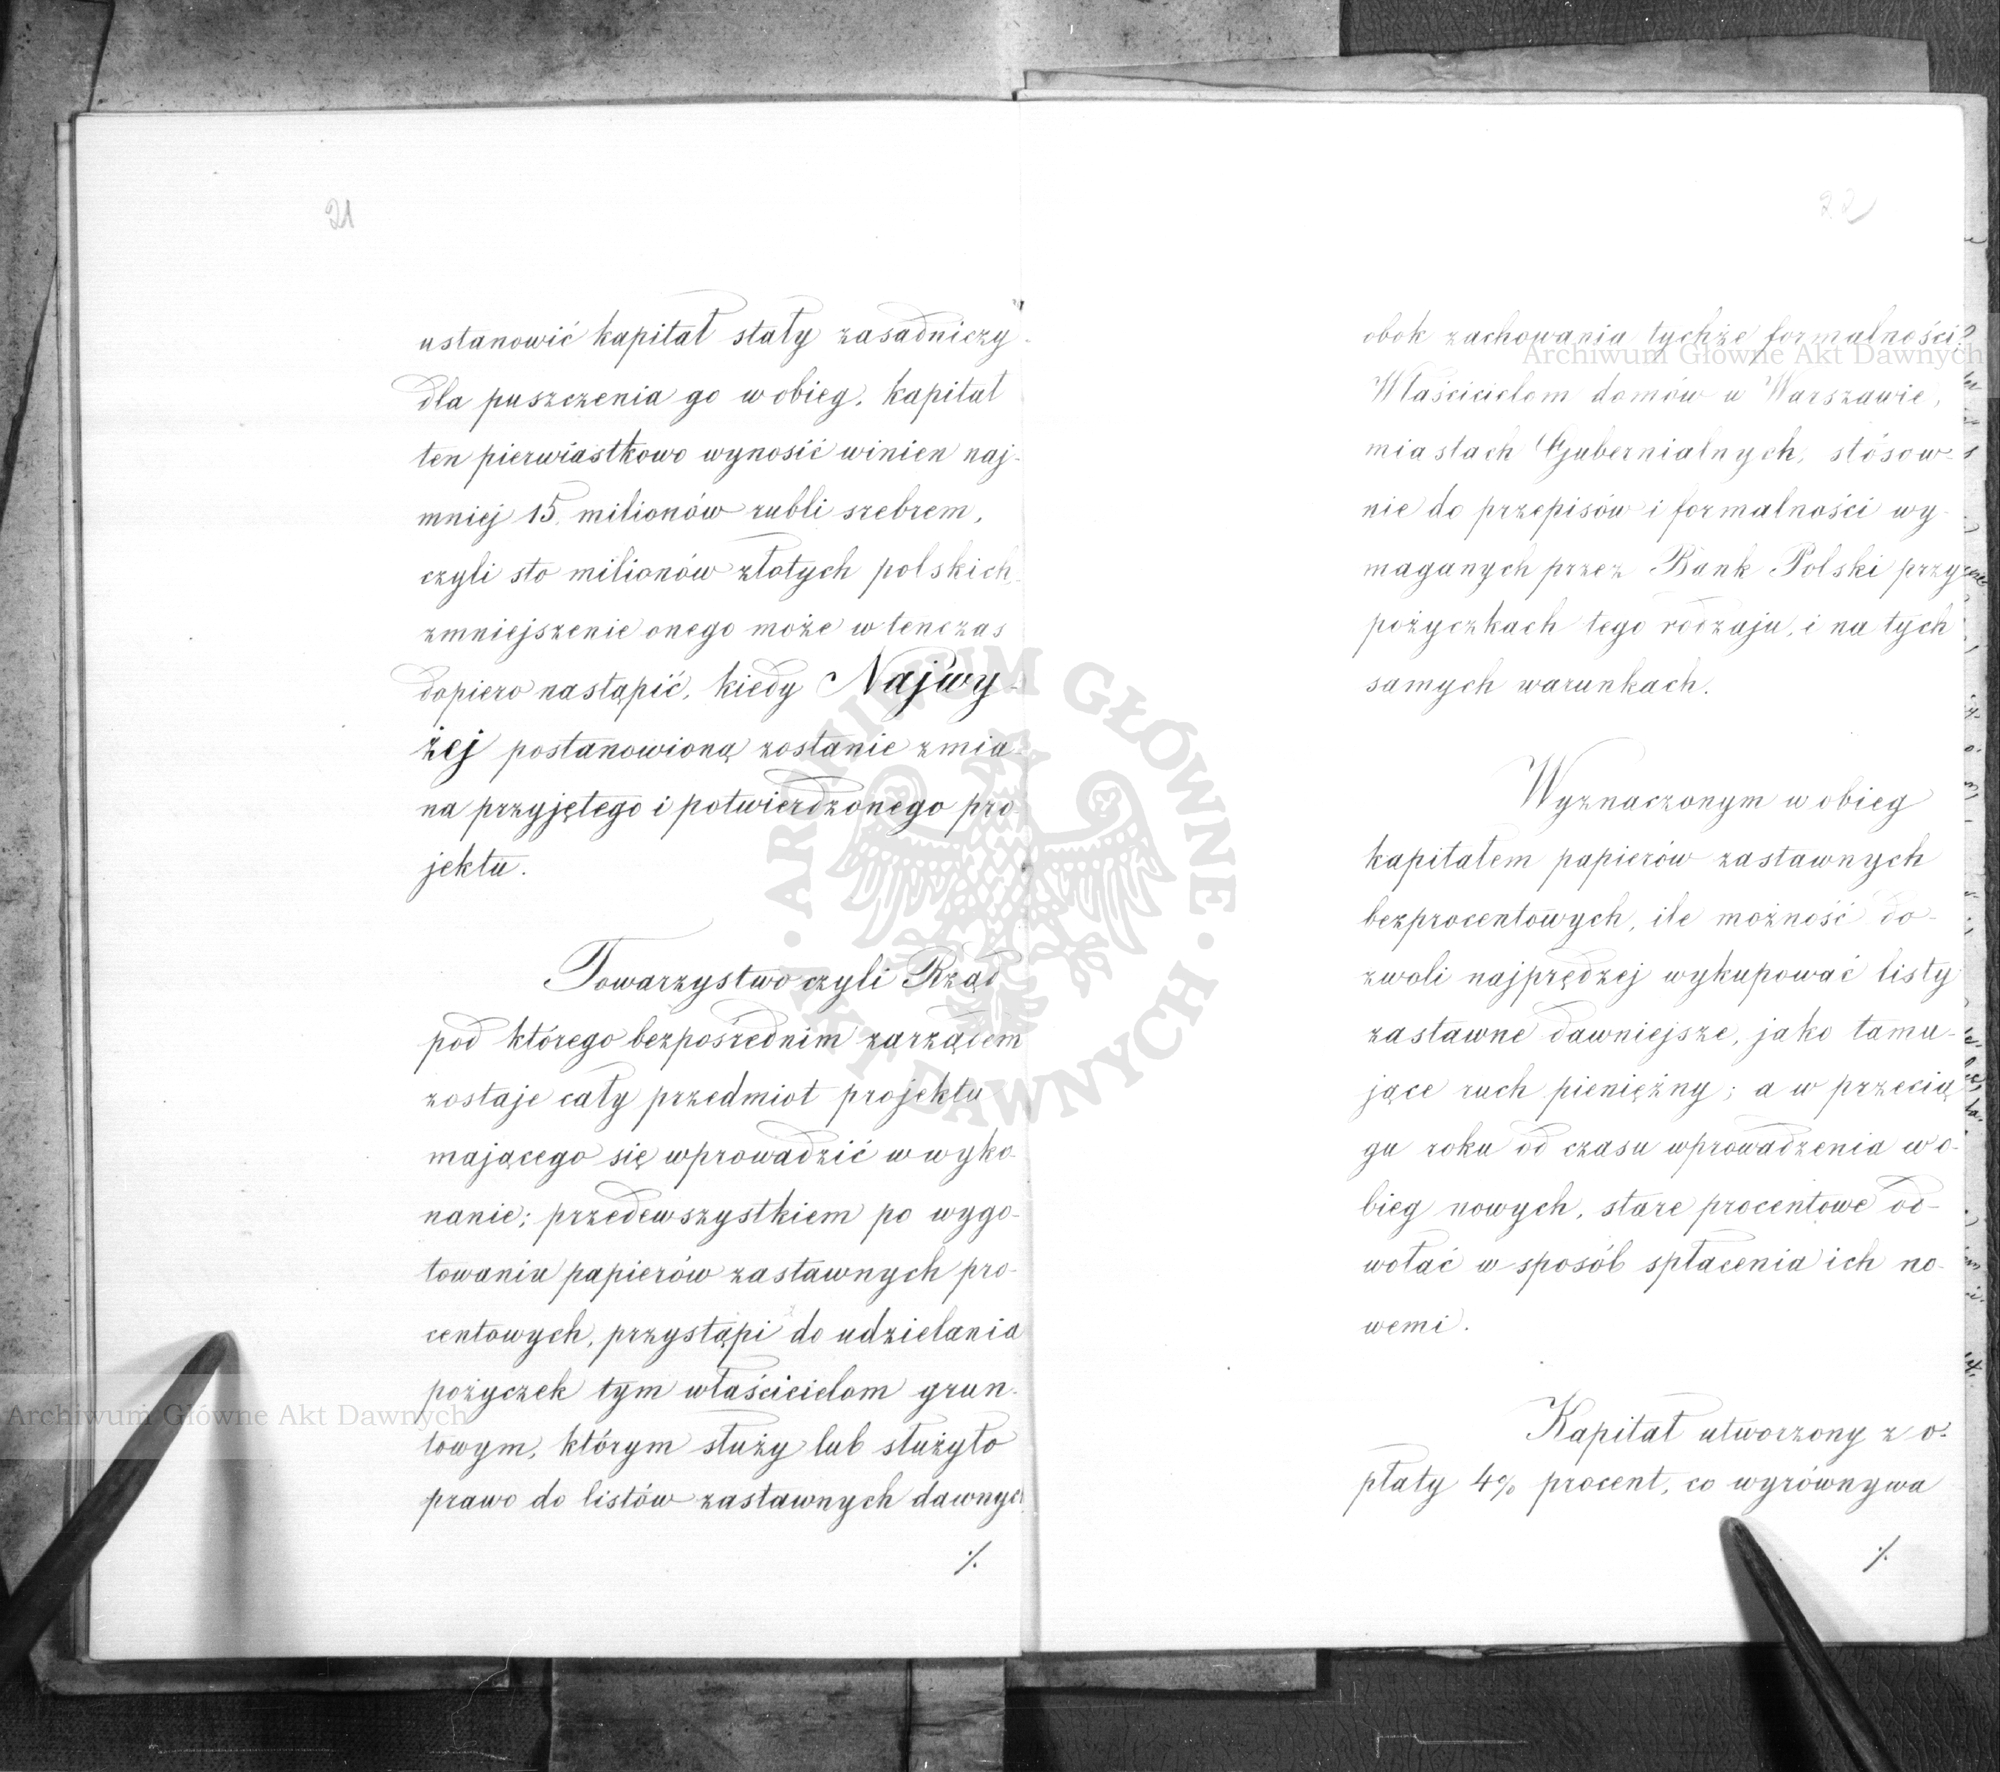 21
ustanowić kapitał stały zasadniczy
dla puszczenia go w obieg, kapitał
ten pierwiastkowo wynosić winien naj-
mniej 15. milionów rubli srebrem,
czyli sto milionów złotych polskich,
zmniejszenie onego może wtenczas
dopiero nastąpić, kiedy Najwy-
żej postanowioną zostanie zmia-
na przyjętego i potwierdzonego pro-
jektu.
Towarzystwo czyli Rząd
pod którego bezpośrednim zarządem
zostaje cały przedmiot projektu
mającego się wprowadzić w wyko-
nanie; przedewszystkiem po wygo-
towaniu papierów zastawnych pro-
centowych, przystąpi do udzielania
pożyczek tym właścicielom grun-
towym, którym służy lub służyło
prawo do listów zastawnych dawnych
./.
22
obok zachowania tychże formalności?
Właścicielom domów w Warszawie,
miastach Gubernialnych, stósow-
nie do przepisów i formalności wy-
maganych przez Bank Polski przy
pożyczkach tego rodzaju, i na tych
samych warunkach.
Wyznaczonym w obieg
kapitałem papierów zastawnych
bezprocentowych, ile możność do-
zwoli najprędzej wykupować listy
zastawne dawniejsze, jako tamu-
jące ruch pieniężny; a w przecią
gu roku od czasu wprowadzenia w o-
bieg nowych, stare procentowe od-
wołać w sposób spłacenia ich no-
wemi.
Kapitał utworzony z o-
płaty 4% procent, co wyrównywa
./.
Archiwum Główne Akt Dawnych
Archiwum Główne Akt Dawnych
ARCHIWUM GŁÓWNE · AKT DAWNYCH ·